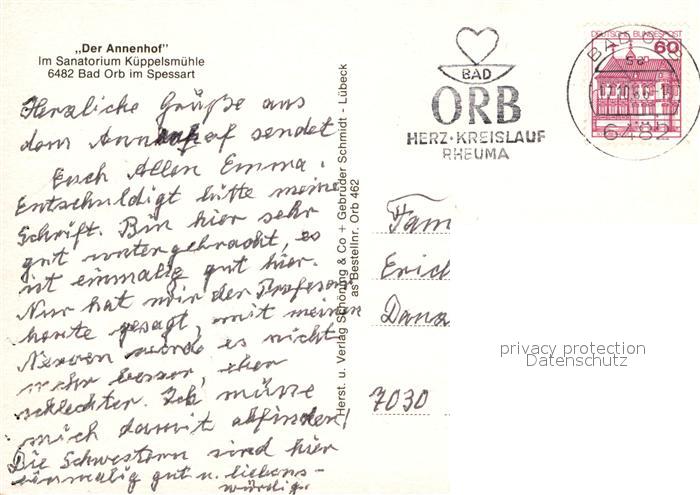 „Der Annenhof"
Im Sanatorium Küppelsmühle
6482 Bad Orb im Spessart
Herzliche Grüße aus
dem Annenhof sendet
Euch Allen Emma.
Entschuldigt bitte meine
Schrift. Bin hier sehr
gut untergebracht, es
ist einmalig gut hier.
Nur hat mir der Professor
heute gesagt, mit meinen
Nerven wird es nicht
mehr besser, eher
schlechter. Ich müsse
mich damit abfinden!
Die Schwestern sind hier
einmalig gut u. liebens-
würdig.
Herst. u. Verlag Schöning & Co + Gebrüder Schmidt - Lübeck
as Bestellnr. Orb 462
BAD
ORB
HERZ·KREISLAUF
RHEUMA
DEUTSCHE BUNDESPOST
60
BAD ORB
6482
Fam
Erich
Dana
7030
privacy protection
Datenschutz